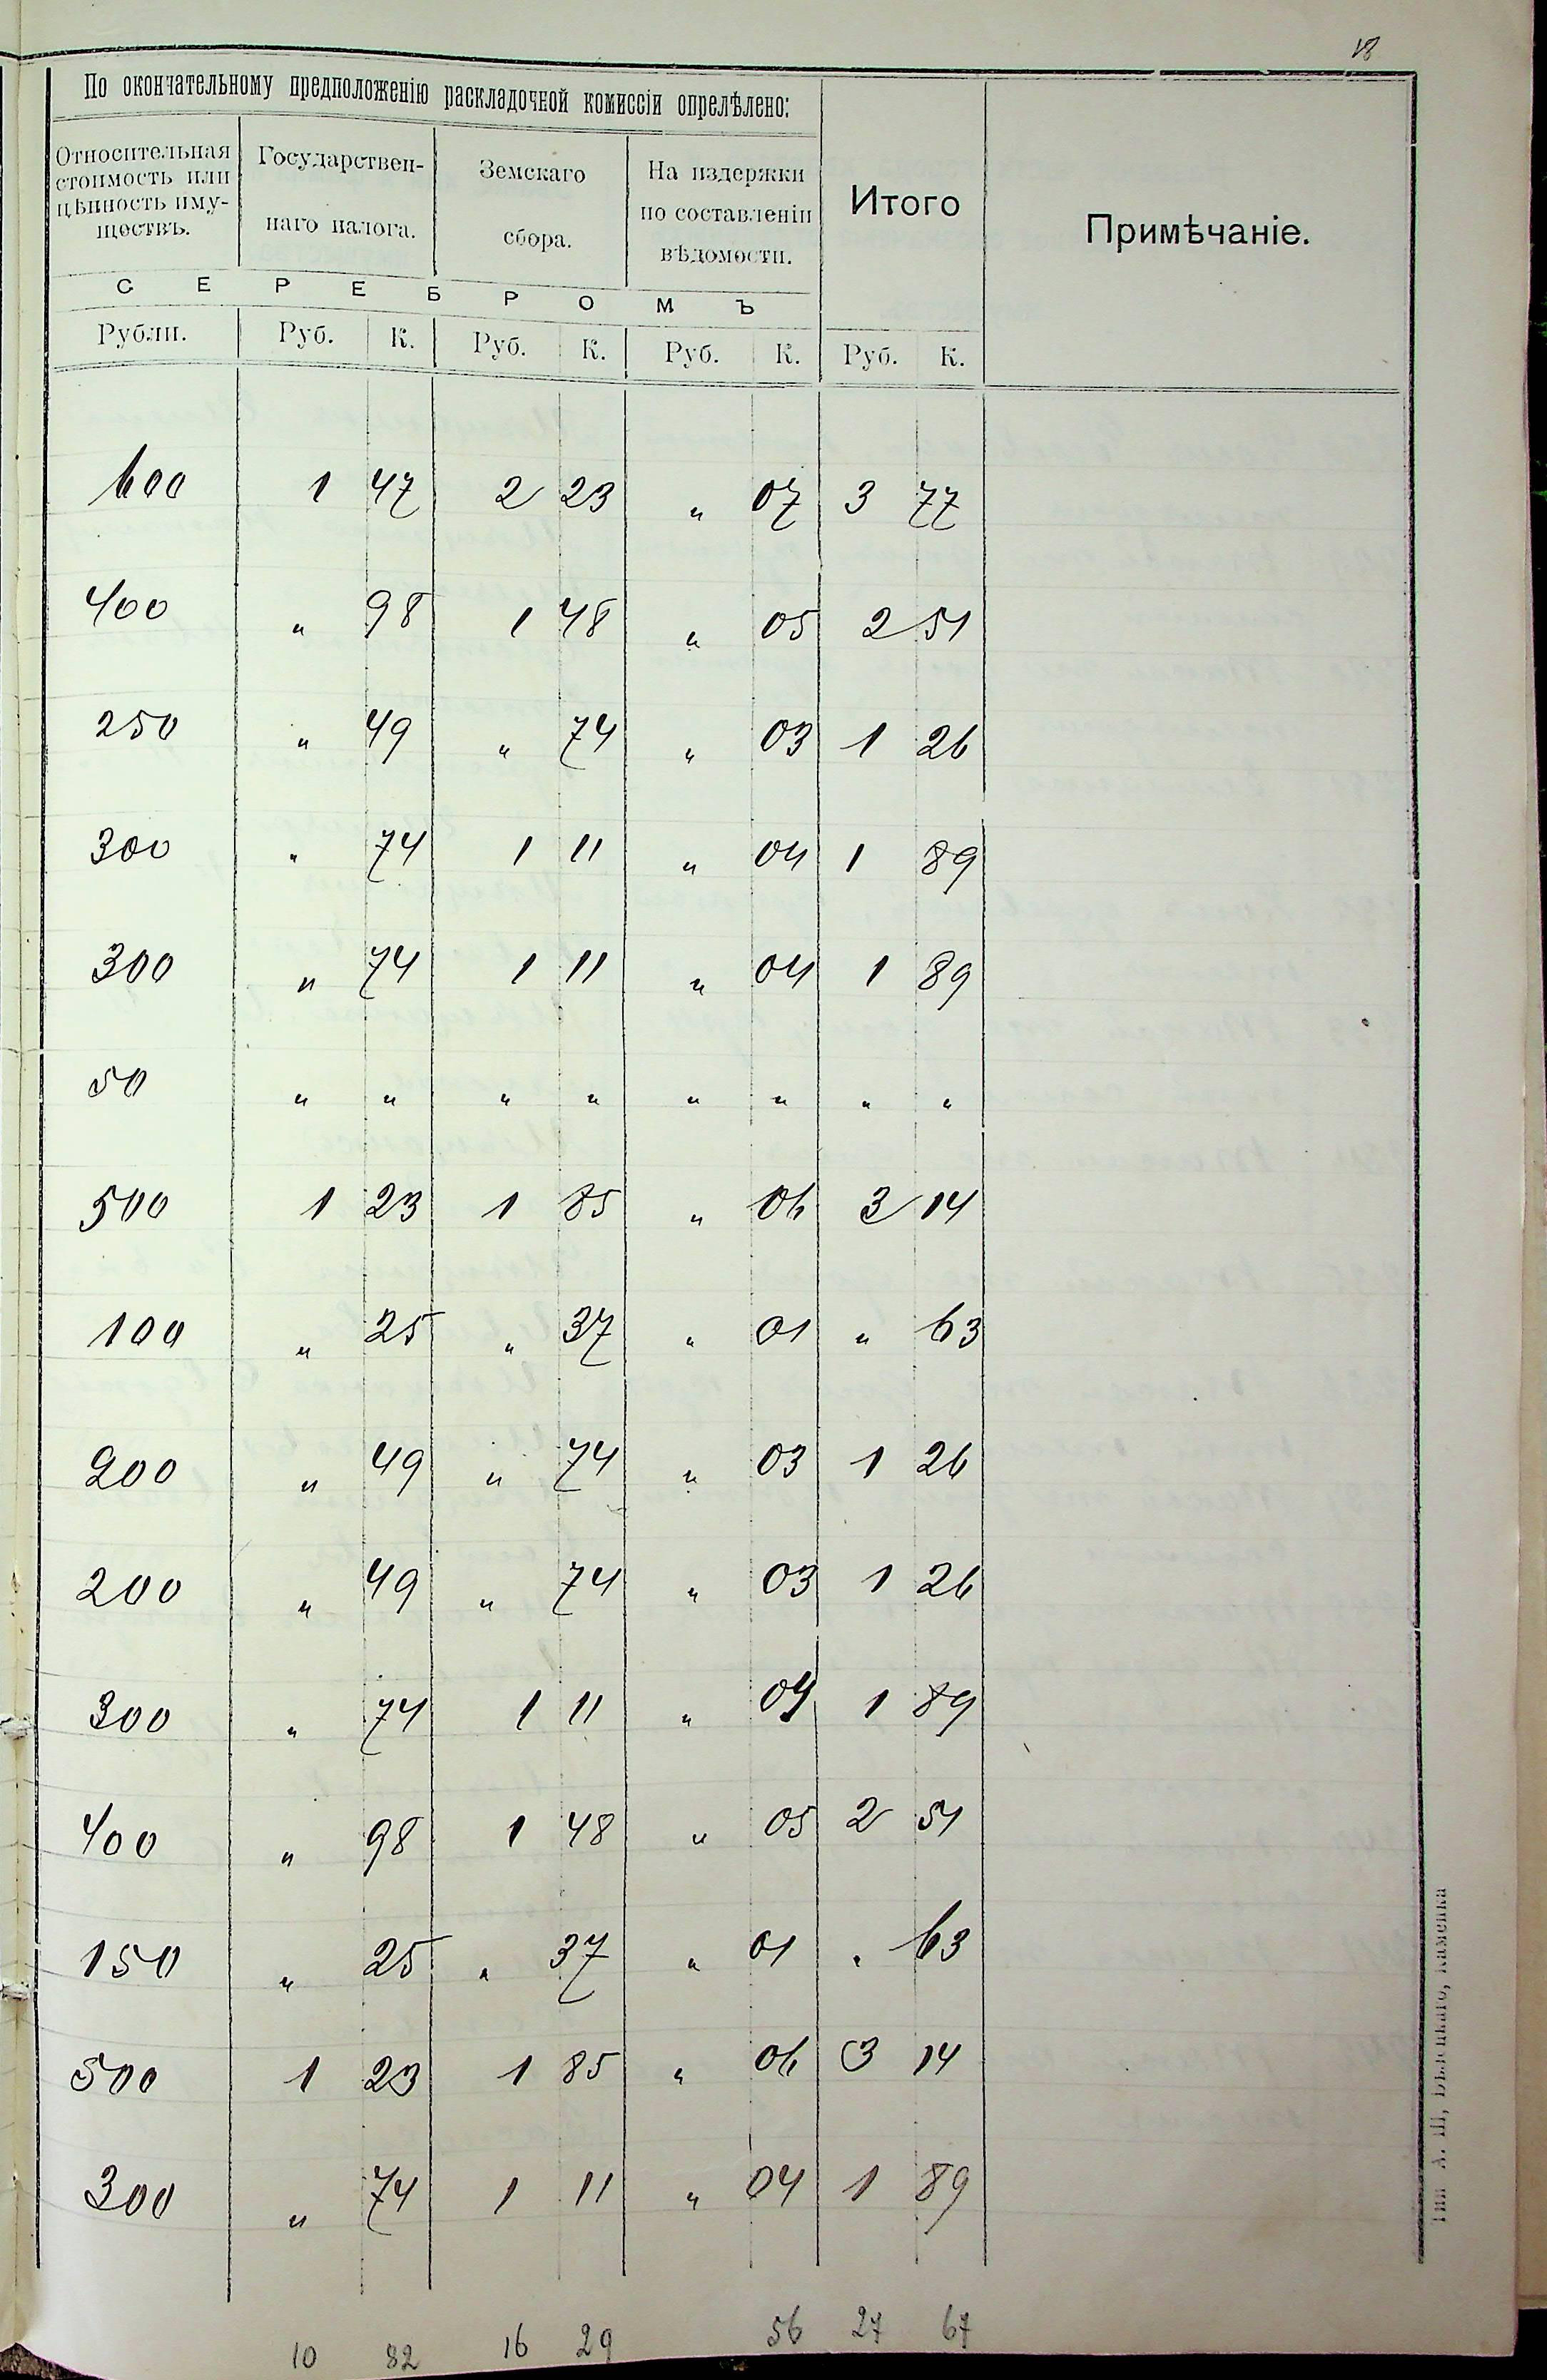 18
По окончательному предположенію раскладочной комиссіи опрелѣлено:
Относительная стоимость или цѣнность иму-ществъ.
Государствен-наго налога.
Земскаго сбора.
На издержки по составленіи вѣдомости.
Итого
Примѣчаніе.
С Е Р Е Б Р О М Ъ
Рубли. Руб. К. Руб. К. Руб. К. Руб. К.
600 1 47 2 23 „ 07 3 77
400 „ 98 1 48 „ 05 2 51
250 „ 49 „ 74 „ 03 1 26
300 „ 74 1 11 „ 04 1 89
300 „ 74 1 11 „ 04 1 89
50 „ „ „ „ „ „ „ „
500 1 23 1 85 „ 06 3 14
100 „ 25 „ 37 „ 01 „ 63
200 „ 49 „ 74 „ 03 1 26
200 „ 49 „ 74 „ 03 1 26
300 „ 74 1 11 „ 04 1 89
400 „ 98 1 48 „ 05 2 51
150 „ 25 „ 37 „ 01 „ 63
500 1 23 1 85 „ 06 3 14
300 „ 74 1 11 „ 04 1 89
10 82 16 29 56 27 67
Тип А. Ш, Каменка